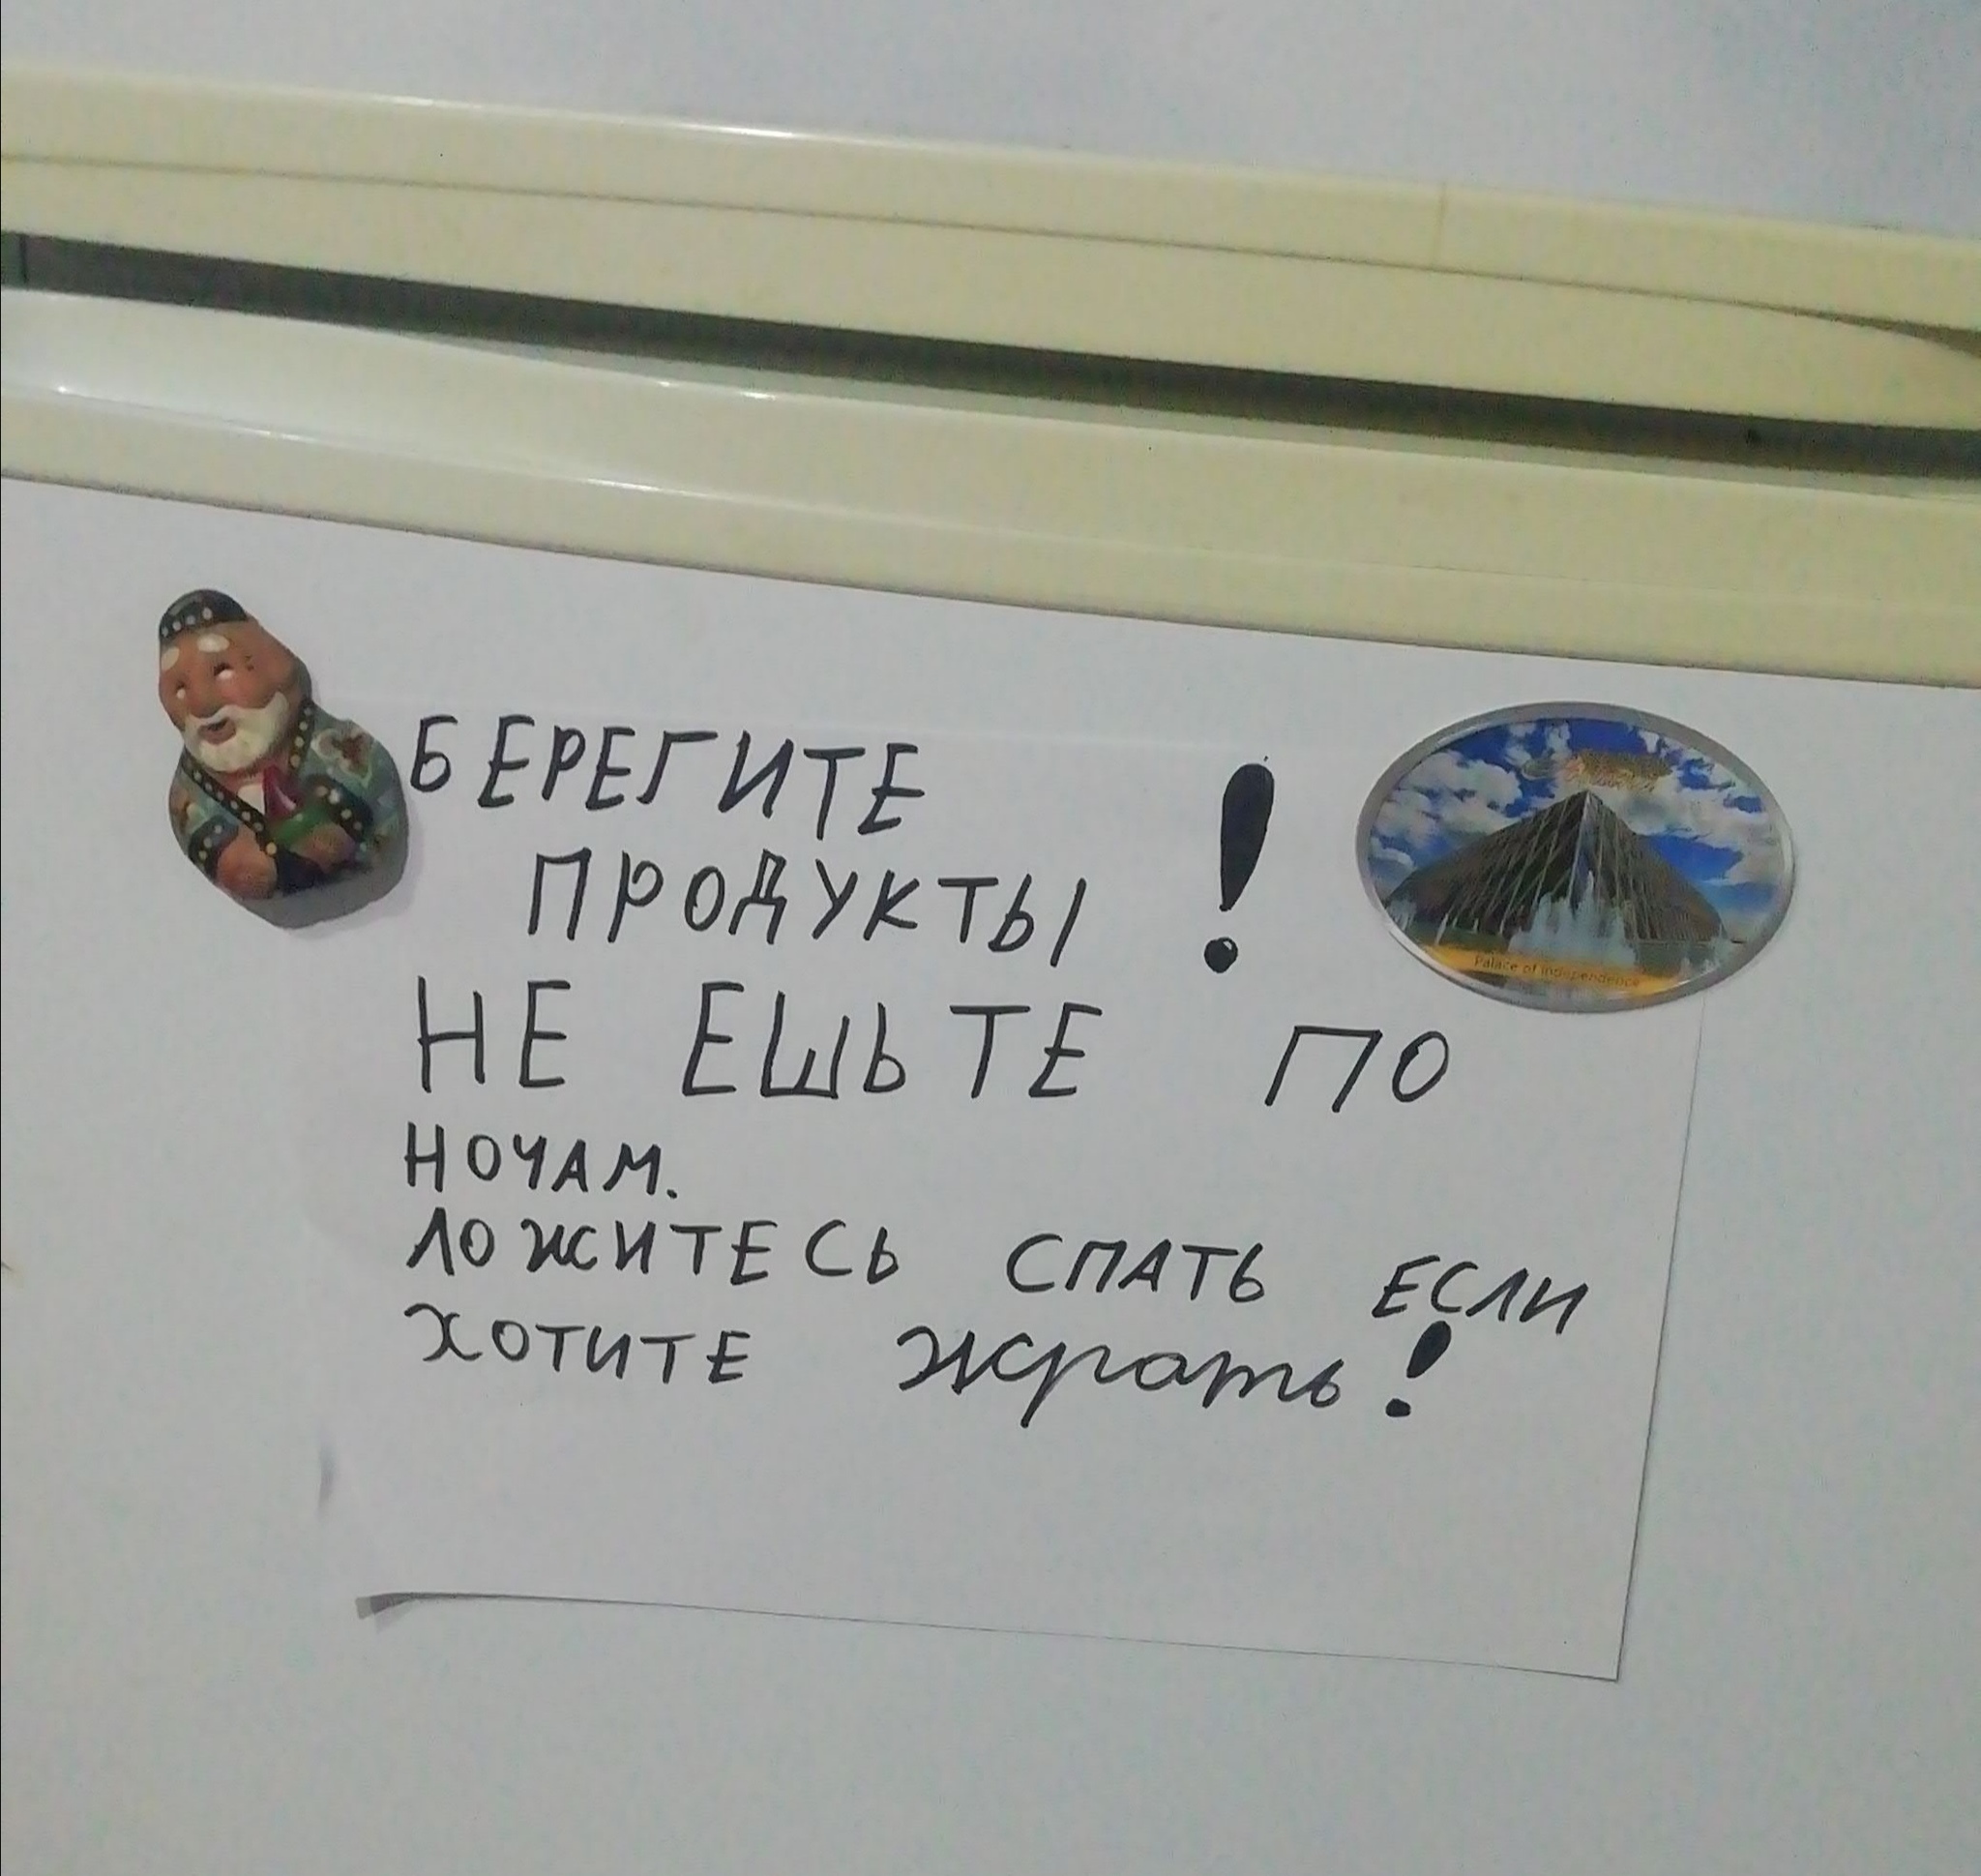 БЕРЕГИТЕ
ПРОДУКТЫ !
НЕ ЕШЬТЕ ПО
НОЧАМ.
ЛОЖИТЕСЬ СПАТЬ ЕСЛИ
ХОТИТЕ жрать!
Palace of Independence